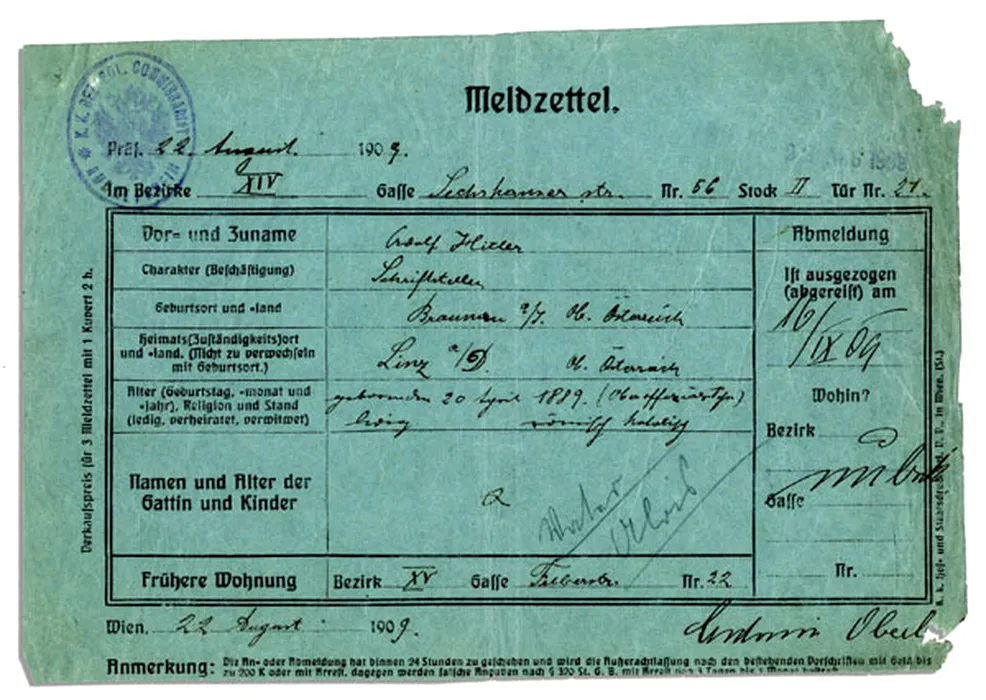 K. K. BEZ. POL. COMMISSARIAT
Meldzettel.
Präs. 22 August 1909.
Am Bezirke XIV Gasse Sechshauser str. Nr. 56 Stock II Tür Nr. 21.
Vor- und Zuname Adolf Hitler
Charakter (Beschäftigung) Schriftsteller
Geburtsort und -land Braunau a/I. Ob. Österreich
Heimats(Zuständigkeits)ort
und -land. (Nicht zu verwechseln
mit Geburtsort.) Linz a/D. Ob. Österreich
Alter (Geburtstag, -monat und
-jahr), Religion und Stand
(ledig, verheiratet, verwitwet) geboren den 20 April 1889.
ledig römisch katolisch
Namen und Alter der
Gattin und Kinder
Vater
Alois
Frühere Wohnung Bezirk XV Gasse Felberstr. Nr. 22
Abmeldung
Ist ausgezogen
(abgereist) am
16/
IX 09
Wohin?
Bezirk
unbek
Gasse
Nr.
Wien, 22 August 1909.
Antonia Oberl
Anmerkung: Die An- oder Abmeldung hat binnen 24 Stunden zu geschehen und wird die Außerachtlassung nach den bestehenden Vorschriften mit Geld bis
zu 200 K oder mit Arrest, dagegen werden falsche Angaben nach § 320 St. G. B. mit Arrest von 3 Tagen bis 1 Monat bestraft.
Verkaufspreis für 3 Meldzettel mit 1 Kuvert 2 h.
K. k. Hof- und Staatsdruckerei in Wien. (St.)